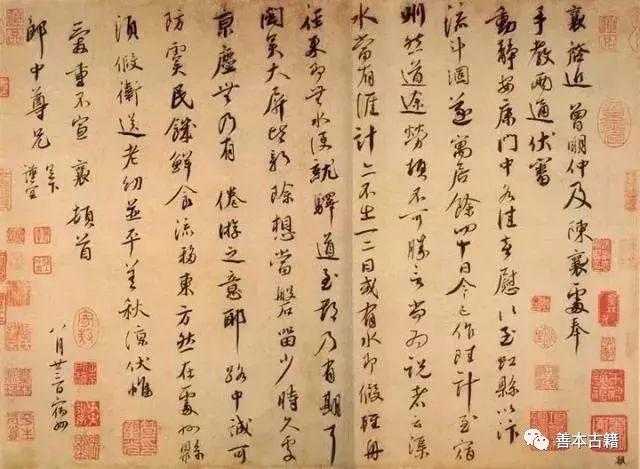 襄啓近 曾明仲及陳襄處奉
手教兩通伏審
動靜安康門中各佳喜慰以至虹縣以汴
流斗涸遂寓居餘四十日今已作陸計至宿
州然道途勞頓不可勝言尚為說者云渠
水當有涯計亦不出一二日或有水即假輕舟
往來即無水便就驛道至都乃有期耳
聞吳大屏皆新除想當盤留少時久處
京塵無乃有 倦游之意耶 路中誠可
防虞民饑鮮食流移東方然在處州縣
須假衛送老幼並平善秋涼伏惟
愛重不宣 襄 頓首
郎中尊兄 足下 謹空
八月廿二日宿州
善本古籍